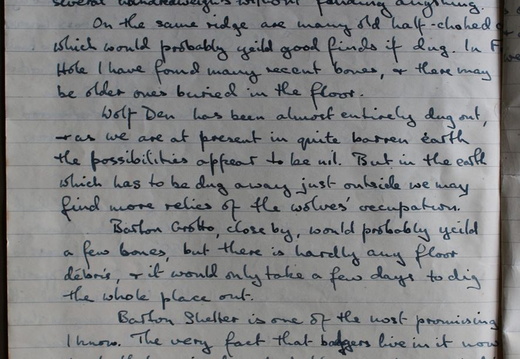 several hundredweights without finding anything.
On the same ridge are many old half-choked
which would probably yeild good finds if dug. In F
Hole I have found many recent bones, + there may
be older ones buried in the floor.
Wolf Den has been almost entirely dug out,
+ as we are at present in quite barren earth
the possibilities appear to be nil. But in the earth
which has to be dug away just outside we may
find more relics of the wolves' occupation.
Barton Grotto, close by, would probably yeild
a few bones, but there is hardly any floor
débris, + it would only take a few days to dig
the whole place out.
Barton Shelter is one of the most promising
I know. The very fact that badgers live in it now